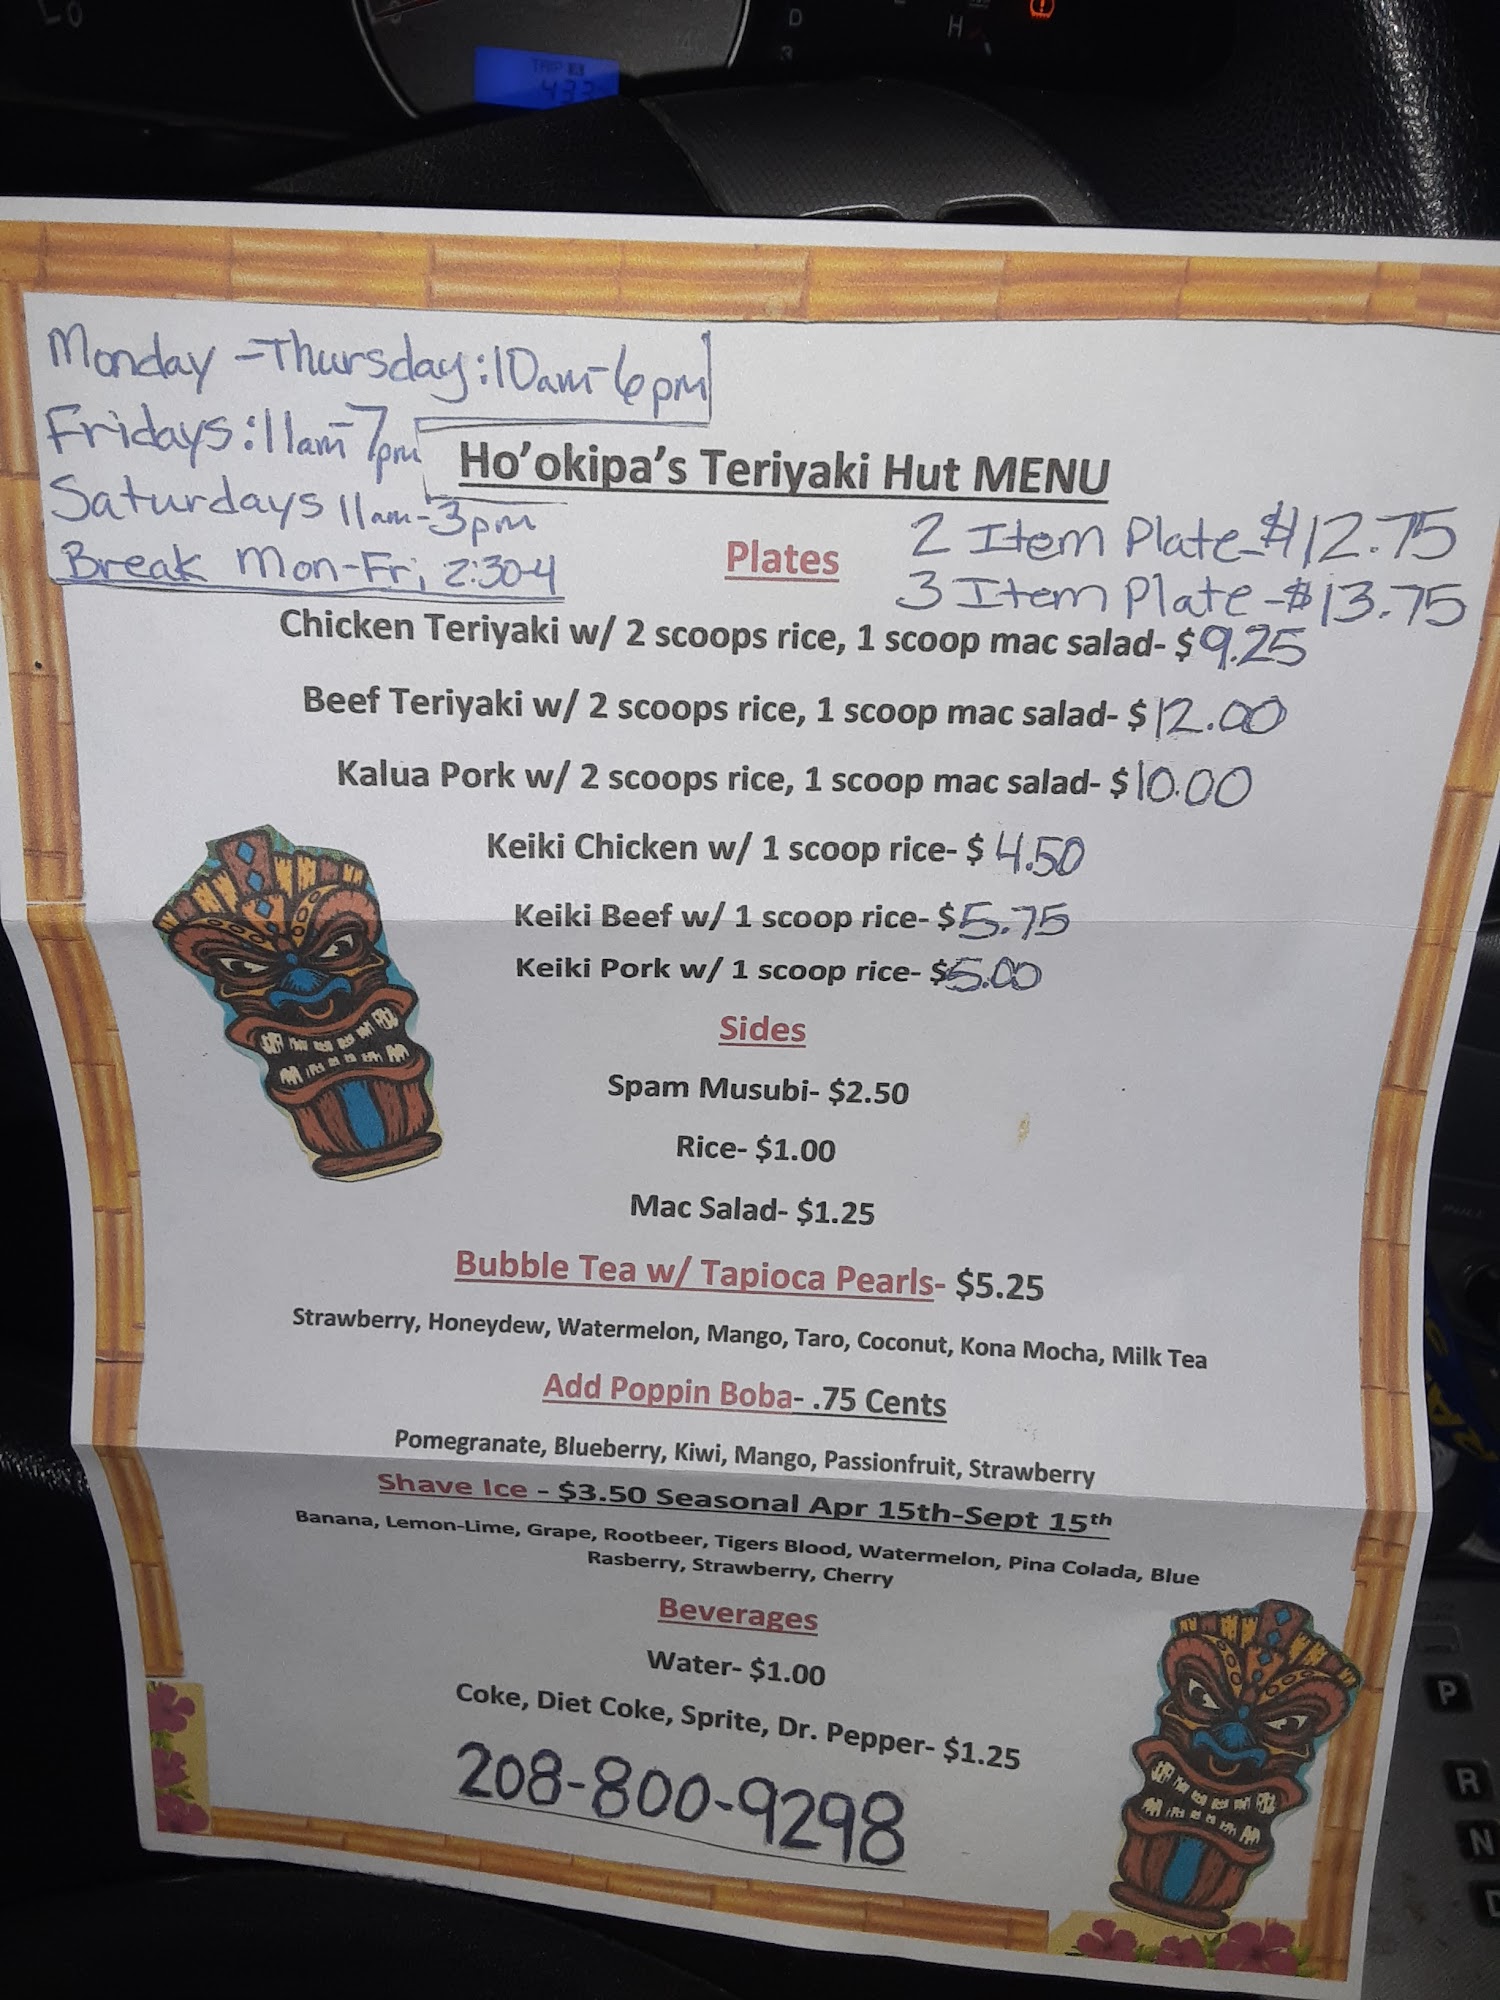 TRIP B
433
D
3
H
Monday-Thursday:10am-6pm
Fridays:11am-7pm
Saturdays 11am-3pm
Break Mon-Fri, 2:30-4
Ho'okipa's Teriyaki Hut MENU
Plates
2 Item Plate-$12.75
3 Item Plate-$13.75
Chicken Teriyaki w/ 2 scoops rice, 1 scoop mac salad- $9.25
Beef Teriyaki w/ 2 scoops rice, 1 scoop mac salad- $12.00
Kalua Pork w/ 2 scoops rice, 1 scoop mac salad- $10.00
Keiki Chicken w/ 1 scoop rice- $4.50
Keiki Beef w/ 1 scoop rice- $5.75
Keiki Pork w/ 1 scoop rice- $5.00
Sides
Spam Musubi- $2.50
Rice- $1.00
Mac Salad- $1.25
Bubble Tea w/ Tapioca Pearls- $5.25
Strawberry, Honeydew, Watermelon, Mango, Taro, Coconut, Kona Mocha, Milk Tea
Add Poppin Boba- .75 Cents
Pomegranate, Blueberry, Kiwi, Mango, Passionfruit, Strawberry
Shave Ice - $3.50 Seasonal Apr 15th-Sept 15th
Banana, Lemon-Lime, Grape, Rootbeer, Tigers Blood, Watermelon, Pina Colada, Blue
Rasberry, Strawberry, Cherry
Beverages
Water- $1.00
Coke, Diet Coke, Sprite, Dr. Pepper- $1.25
208-800-9298
P
R
N
D